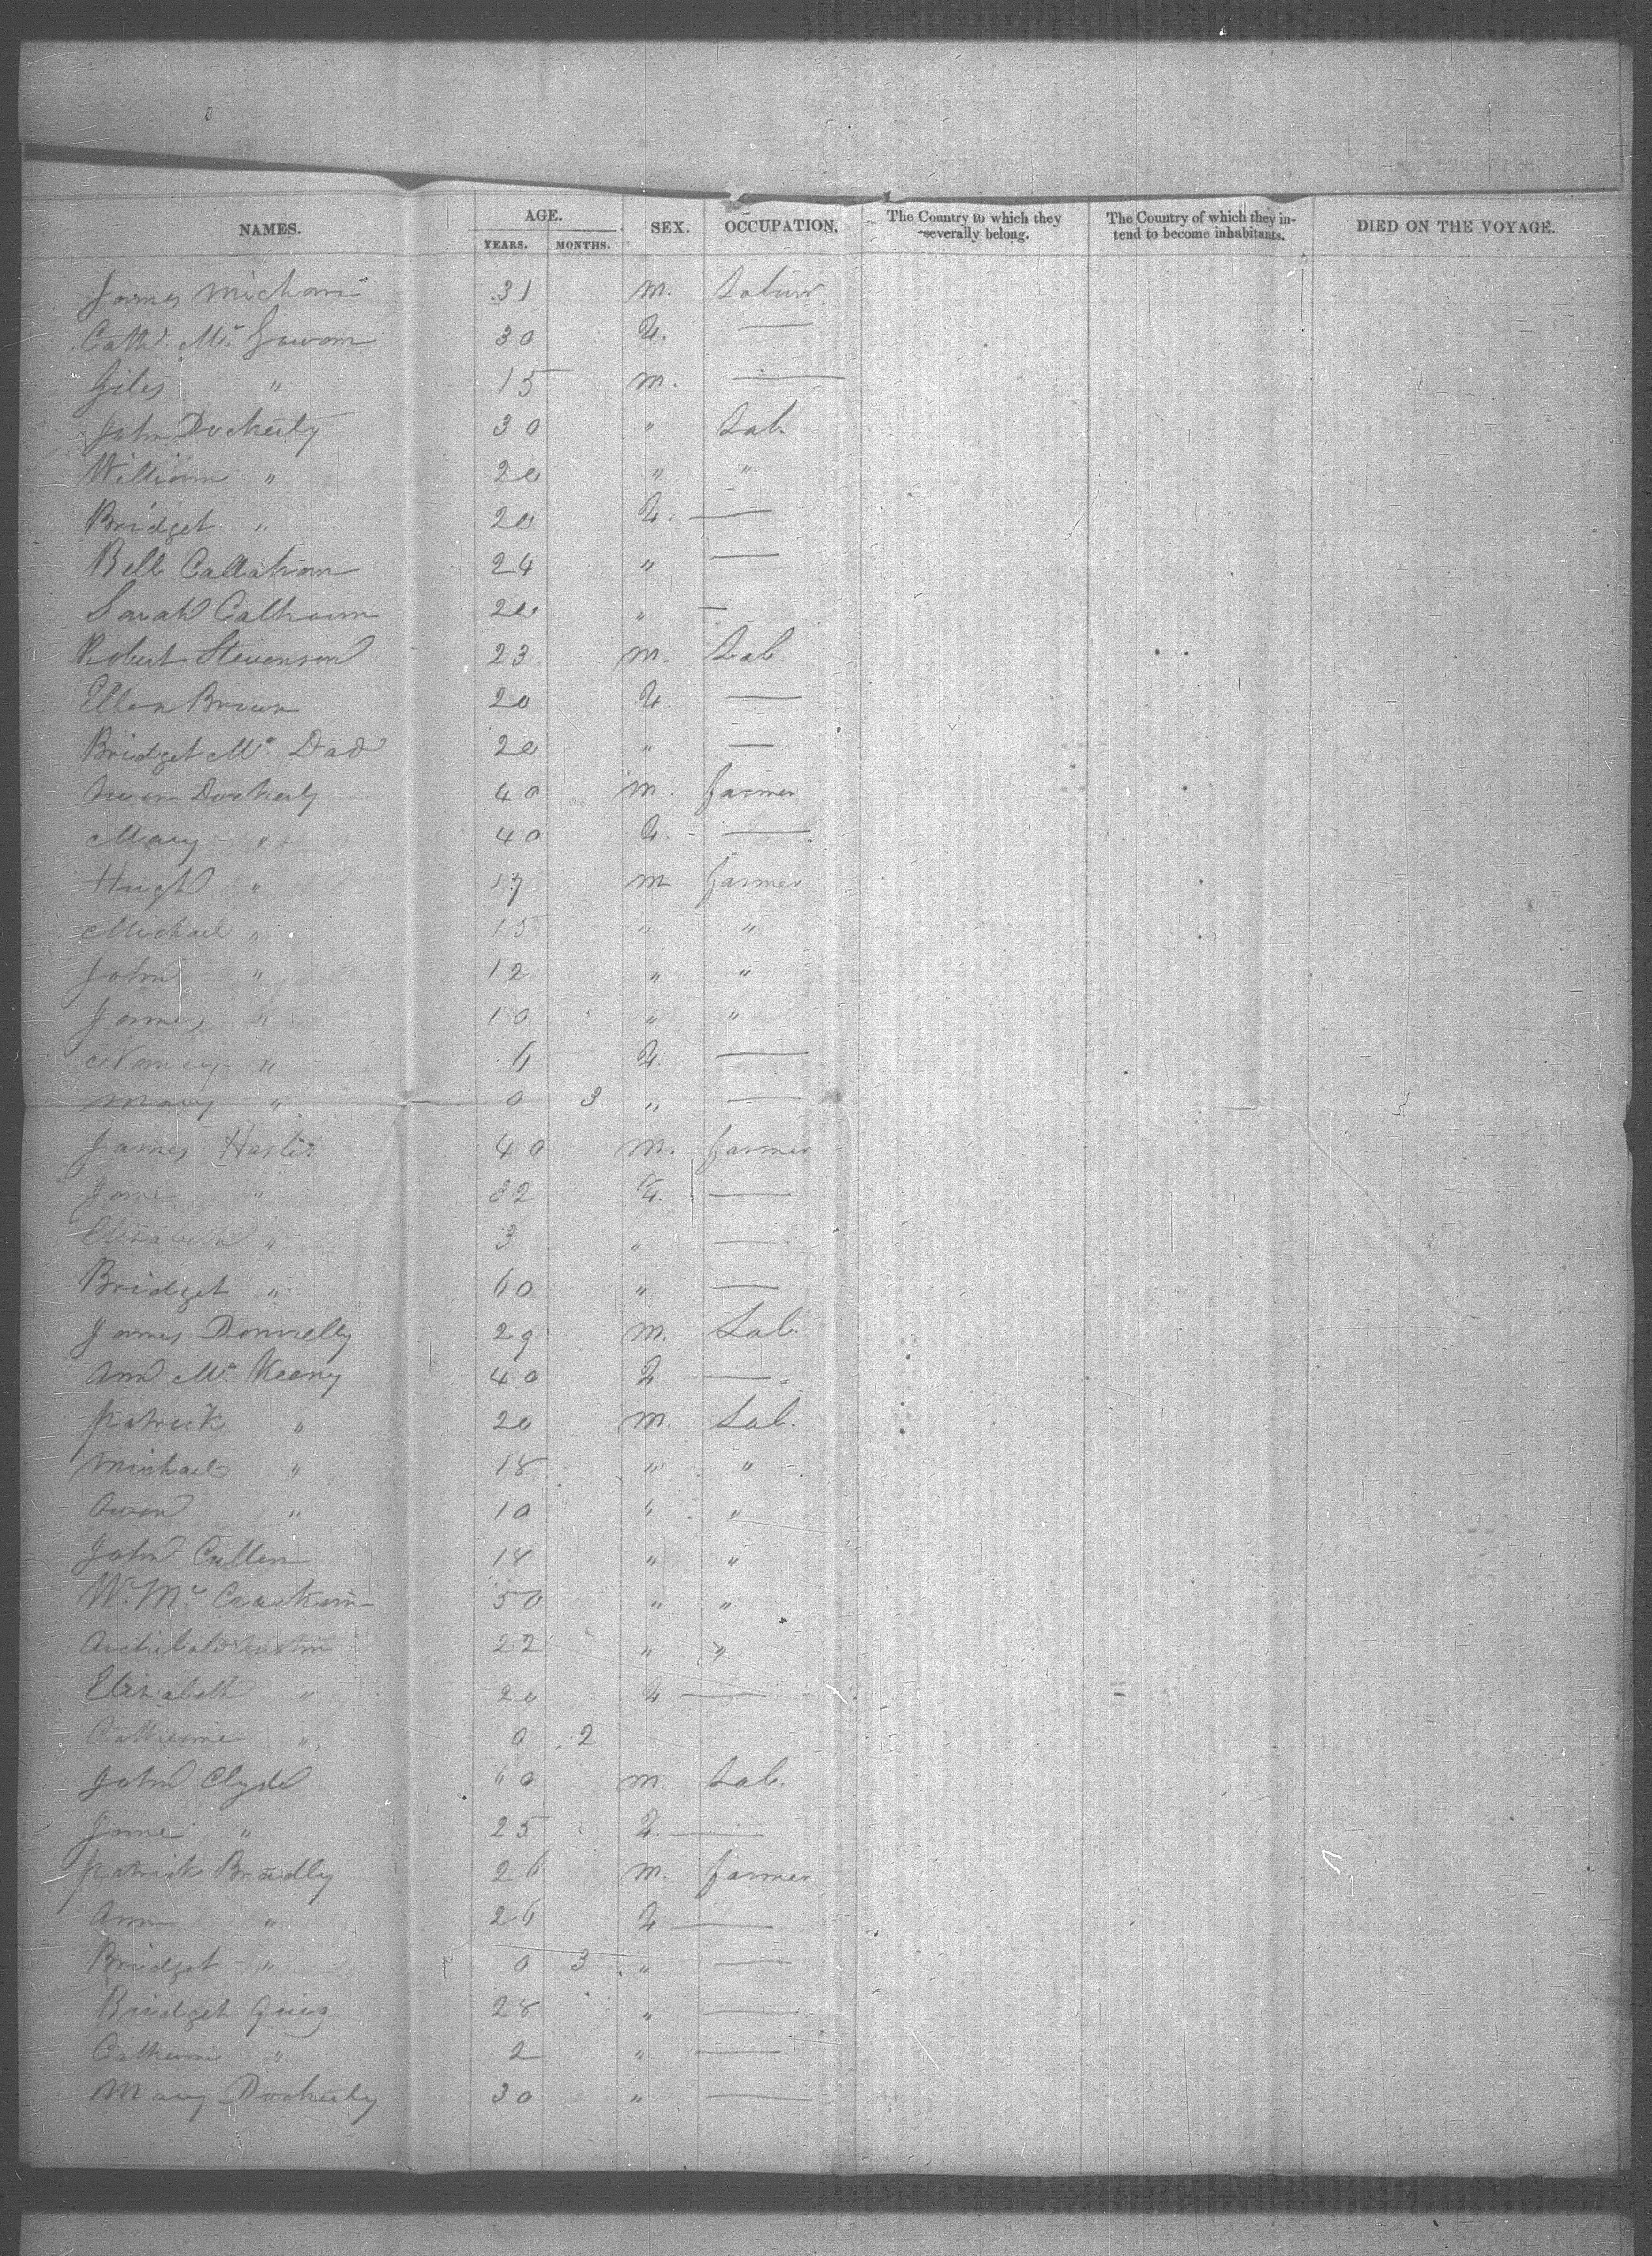 NAMES. AGE. YEARS. MONTHS. SEX. OCCUPATION. The Country to which they severally belong. The Country of which they intend to become inhabitants. DIED ON THE VOYAGE.
James 31 m. Labour
Cathe. Mc. Gowan 30 F. —
Giles " 15 m. —
John Docherty 30 " Lab.
William " 20 " "
Bridget " 20 F. —
Bell Callahan 24 " —
Sarah Calhoun 20 " —
Robert Stevenson 23 m. Lab.
Ellen Brown 20 F. —
Bridget Mc. Dad 20 " —
Owen Docherty 40 m. farmer
Mary " 40 F. —
Hugh " 17 m farmer
Michael " 15 " "
John " 12 " "
James " 10 " "
Nancy " 6 F. —
Mary " 0 3 " —
James 40 m. farmer
Jane " 32 F. —
Elizabeth " 3 " —
Bridget " 60 " —
James Donnelly 29 m. Lab.
Ann Mc. Keeny 40 F —
Patrick " 20 m. Lab.
Michael " 18 " "
Owen " 10 " "
John Cullen 18 " "
Wm. Mc. Crackem 50 " "
Archibald 22 " "
Elizabeth " 20 F —
Catherine " 0 2
John Clyde 60 m. Lab.
Jane " 25 F. —
Patrick Bradly 26 m. farmer
Ann " 26 F —
Bridget " 0 3 " —
Bridget 28 " —
Catherine " 2 " —
Mary Docherty 30 " —